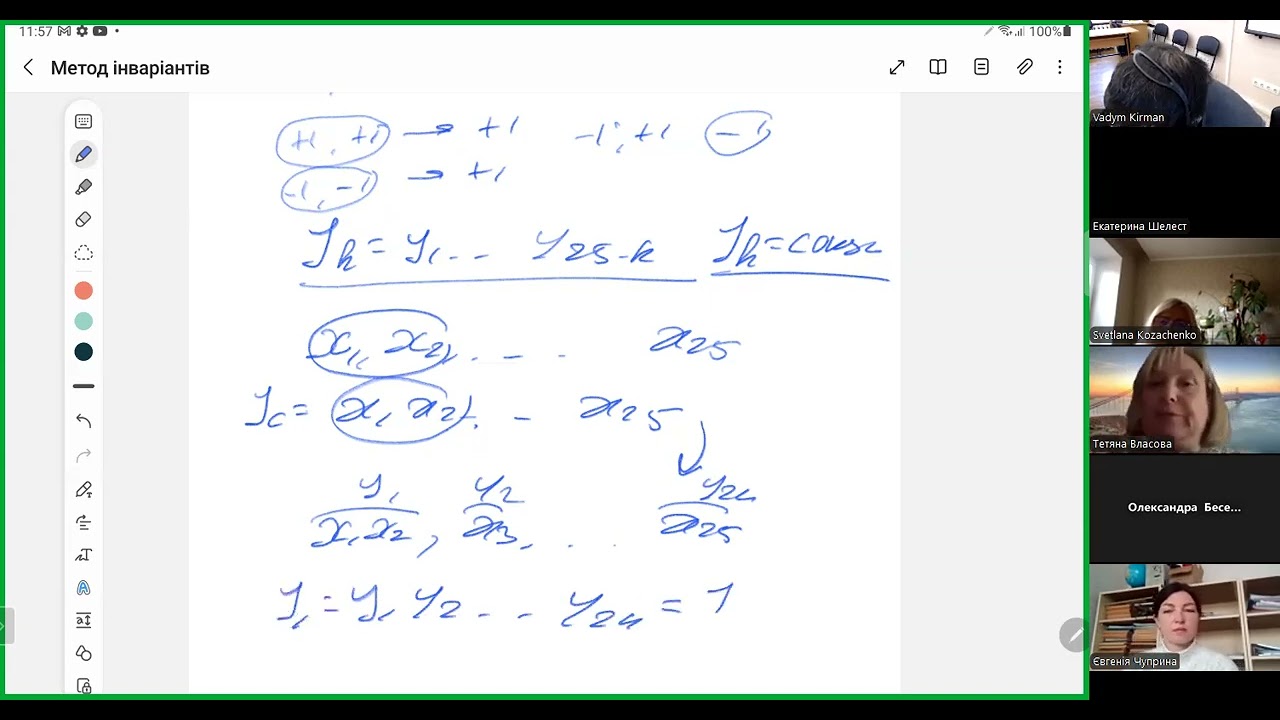 11:57 100%
Метод інваріантів
+1, +1 → +1 -1; +1 -1
-1, -1 → +1
J_k = y_1 .. y_25-k J_k = const
x_1, x_2, . - . x_25
J_0 = x_1 x_2 . - x_25
y_1 y_2 y_24
x_1 x_2, x_3, . . . x_25
J_1 = y_1 y_2 .. y_24 = J
Vadym Kirman
Екатерина Шелест
Svetlana Kozachenko
Тетяна Власова
Олександра Бесе...
Євгенія Чуприна